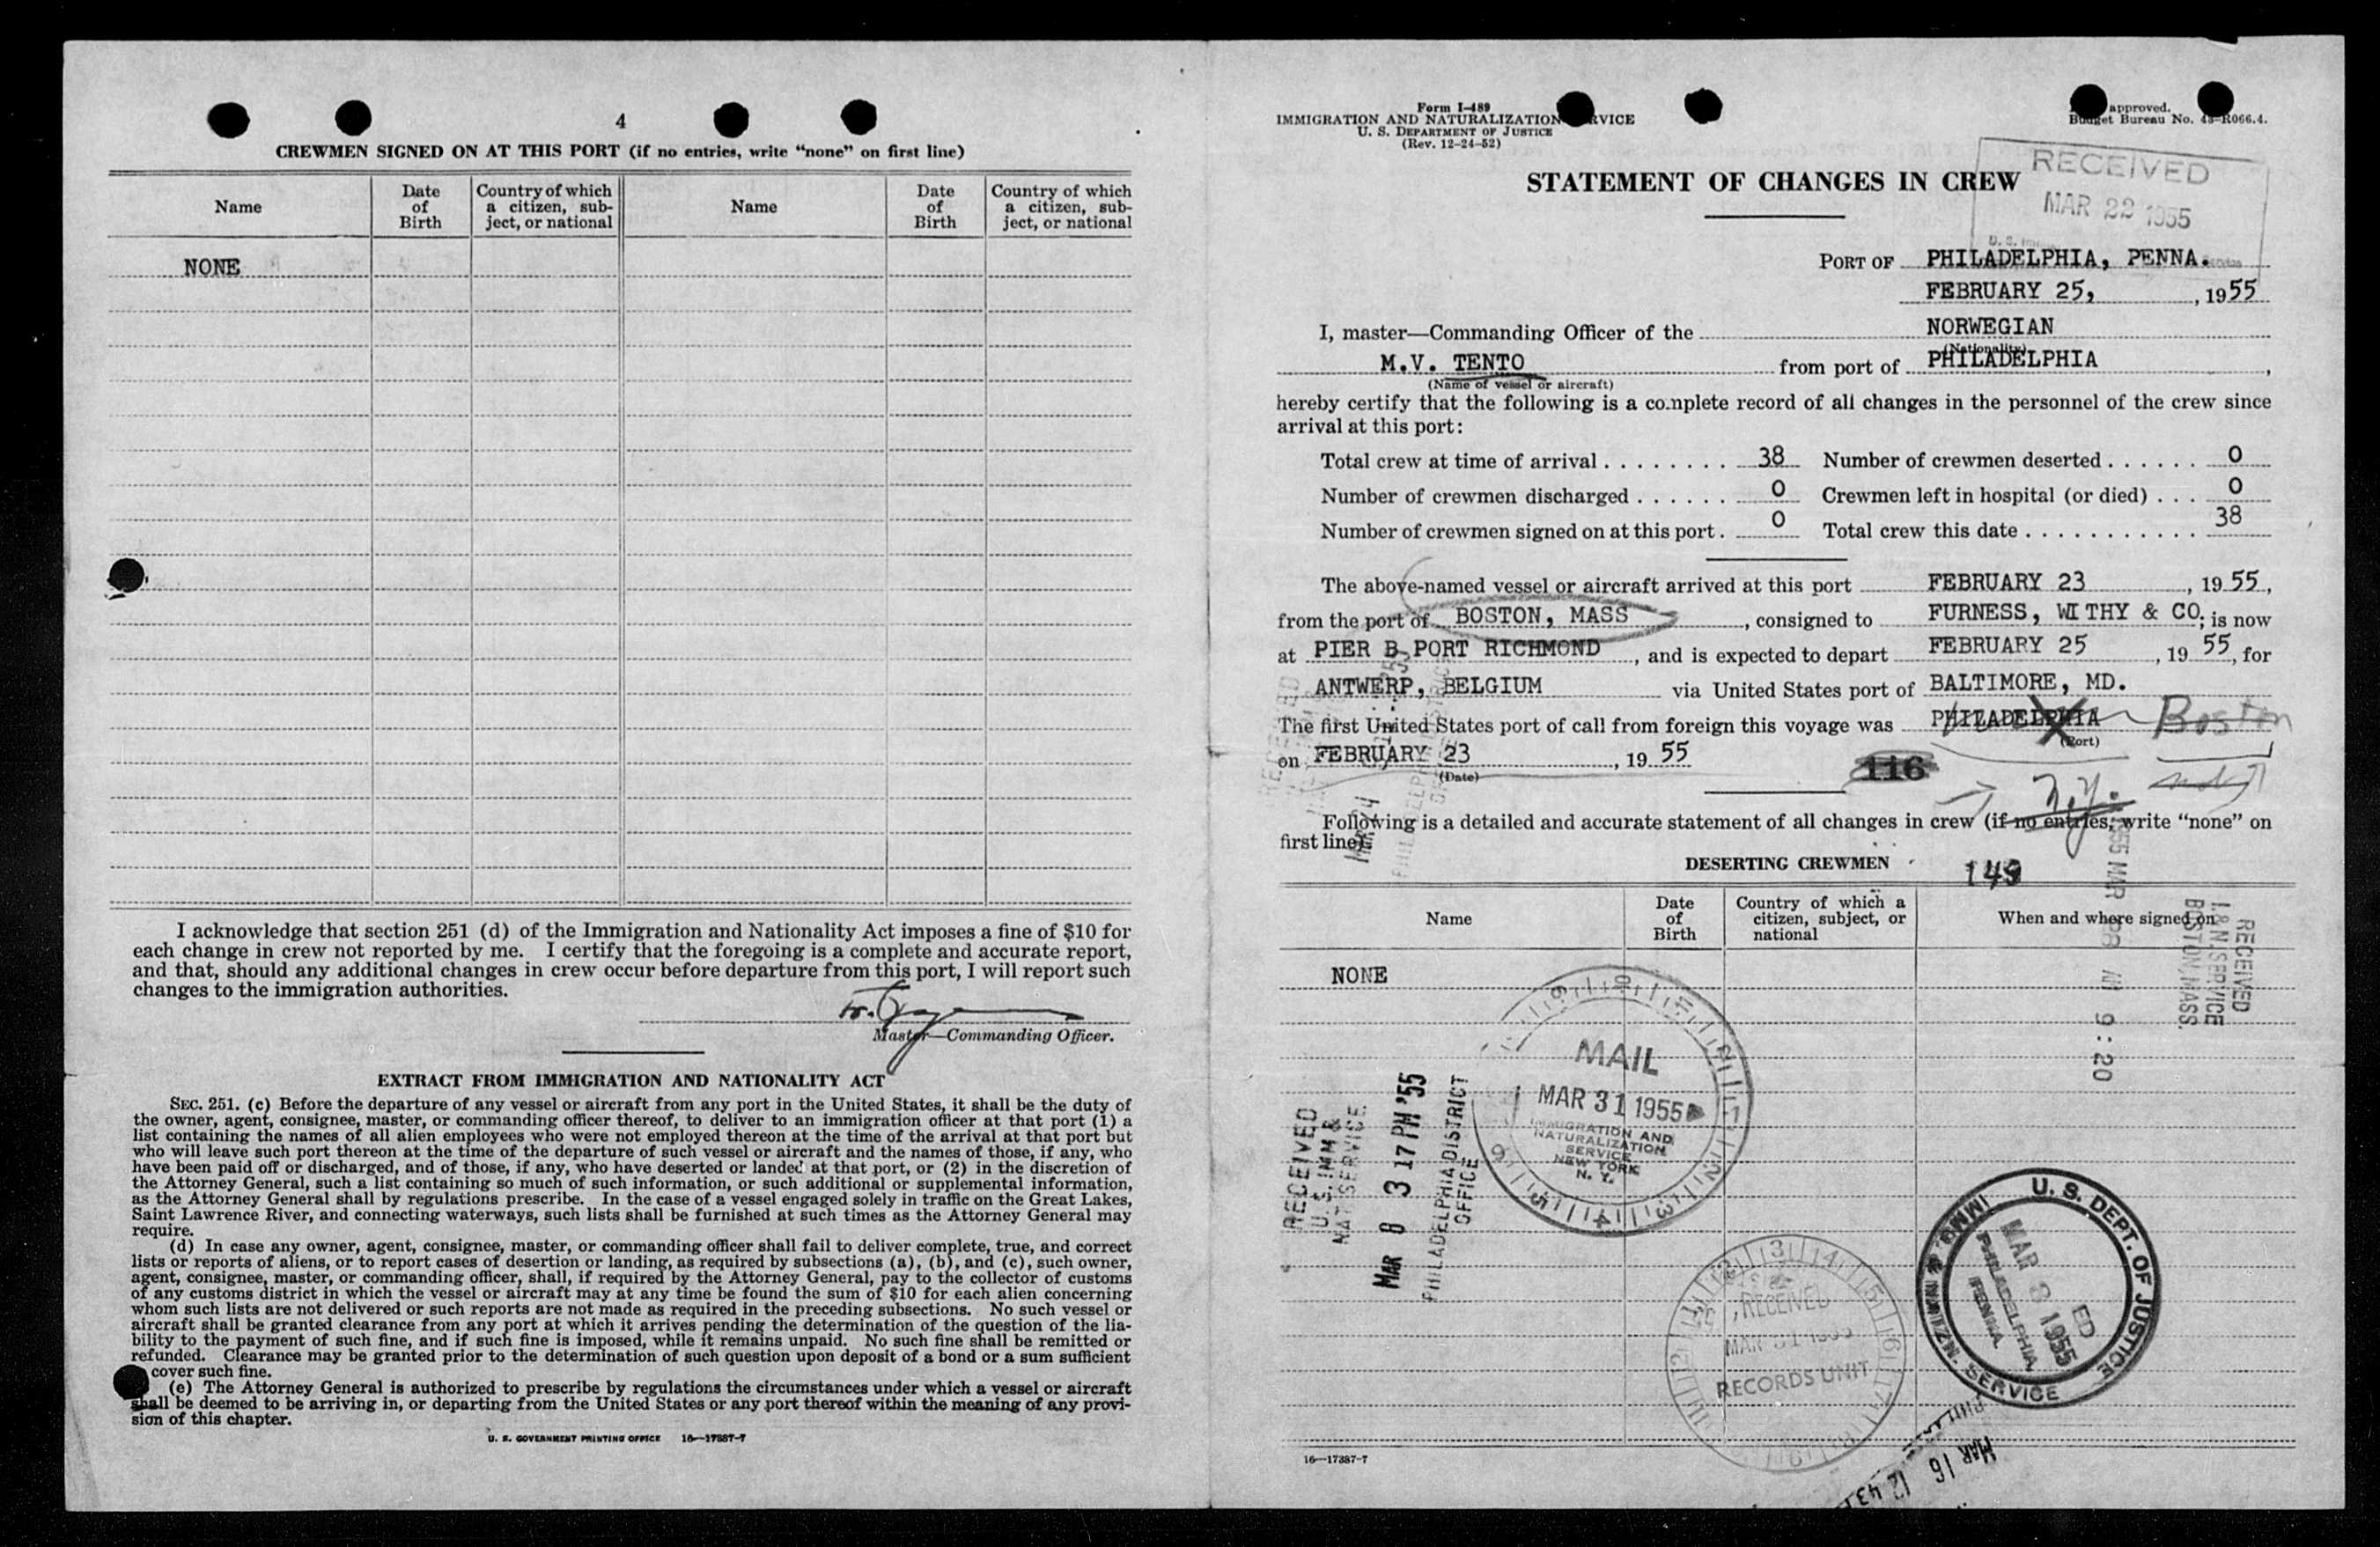 4
CREWMEN SIGNED ON AT THIS PORT (if no entries, write “none” on first line)
Name
Date of Birth
Country of which a citizen, subject, or national
Name
Date of Birth
Country of which a citizen, subject, or national
NONE
I acknowledge that section 251 (d) of the Immigration and Nationality Act imposes a fine of $10 for
each change in crew not reported by me. I certify that the foregoing is a complete and accurate report,
and that, should any additional changes in crew occur before departure from this port, I will report such
changes to the immigration authorities.
Master—Commanding Officer.
EXTRACT FROM IMMIGRATION AND NATIONALITY ACT
SEC. 251. (c) Before the departure of any vessel or aircraft from any port in the United States, it shall be the duty of
the owner, agent, consignee, master, or commanding officer thereof, to deliver to an immigration officer at that port (1) a
list containing the names of all alien employees who were not employed thereon at the time of the arrival at that port but
who will leave such port thereon at the time of the departure of such vessel or aircraft and the names of those, if any, who
have been paid off or discharged, and of those, if any, who have deserted or landed at that port, or (2) in the discretion of
the Attorney General, such a list containing so much of such information, or such additional or supplemental information,
as the Attorney General shall by regulations prescribe. In the case of a vessel engaged solely in traffic on the Great Lakes,
Saint Lawrence River, and connecting waterways, such lists shall be furnished at such times as the Attorney General may
require.
(d) In case any owner, agent, consignee, master, or commanding officer shall fail to deliver complete, true, and correct
lists or reports of aliens, or to report cases of desertion or landing, as required by subsections (a), (b), and (c), such owner,
agent, consignee, master, or commanding officer, shall, if required by the Attorney General, pay to the collector of customs
of any customs district in which the vessel or aircraft may at any time be found the sum of $10 for each alien concerning
whom such lists are not delivered or such reports are not made as required in the preceding subsections. No such vessel or
aircraft shall be granted clearance from any port at which it arrives pending the determination of the question of the lia-
bility to the payment of such fine, and if such fine is imposed, while it remains unpaid. No such fine shall be remitted or
refunded. Clearance may be granted prior to the determination of such question upon deposit of a bond or a sum sufficient
cover such fine.
(e) The Attorney General is authorized to prescribe by regulations the circumstances under which a vessel or aircraft
shall be deemed to be arriving in, or departing from the United States or any port thereof within the meaning of any provi-
sion of this chapter.
U. S. GOVERNMENT PRINTING OFFICE 16—17387-7
Form I-489
IMMIGRATION AND NATURALIZATION RVICE
U. S. DEPARTMENT OF JUSTICE
(Rev. 12-24-52)
approved.
Budget Bureau No. 43-R066.4.
RECEIVED
MAR 22 1955
STATEMENT OF CHANGES IN CREW
PORT OF PHILADELPHIA, PENNA.
FEBRUARY 25, , 1955
I, master—Commanding Officer of the NORWEGIAN
(Nationality)
M.V. TENTO from port of PHILADELPHIA ,
(Name of vessel or aircraft)
hereby certify that the following is a complete record of all changes in the personnel of the crew since
arrival at this port:
Total crew at time of arrival . . . . . . . . 38 Number of crewmen deserted . . . . . . 0
Number of crewmen discharged . . . . . . 0 Crewmen left in hospital (or died) . . . 0
Number of crewmen signed on at this port . 0 Total crew this date . . . . . . . . . . . 38
The above-named vessel or aircraft arrived at this port FEBRUARY 23 , 19 55,
from the port of BOSTON, MASS , consigned to FURNESS, WITHY & CO; is now
at PIER B PORT RICHMOND , and is expected to depart FEBRUARY 25 , 19 55, for
ANTWERP, BELGIUM via United States port of BALTIMORE, MD.
The first United States port of call from foreign this voyage was PHILADELPHIA Boston
(Port)
on FEBRUARY 23 , 19 55
(Date)
116
not
N.Y.
Following is a detailed and accurate statement of all changes in crew (if no entries, write “none” on
first line):
DESERTING CREWMEN
149
Name
Date of Birth
Country of which a citizen, subject, or national
When and where signed on
NONE
RECEIVED
I.&N. SERVICE
BOSTON, MASS.
1955 MAR 28 AM 9:20
MAIL
MAR 31 1955
IMMIGRATION AND
NATURALIZATION
SERVICE
NEW YORK
N. Y.
RECEIVED
U.S. IMM &
NAT SERVICE
MAR 8 3 17 PM '55
PHILADELPHIA DISTRICT
OFFICE
RECEIVED
MAR 31 1955
RECORDS UNIT
U. S. DEPT. OF JUSTICE
IMMG. & NATZN. SERVICE
MAR 8 1955
PHILADELPHIA
PENNA.
MAR 16 12 43
16—17387-7